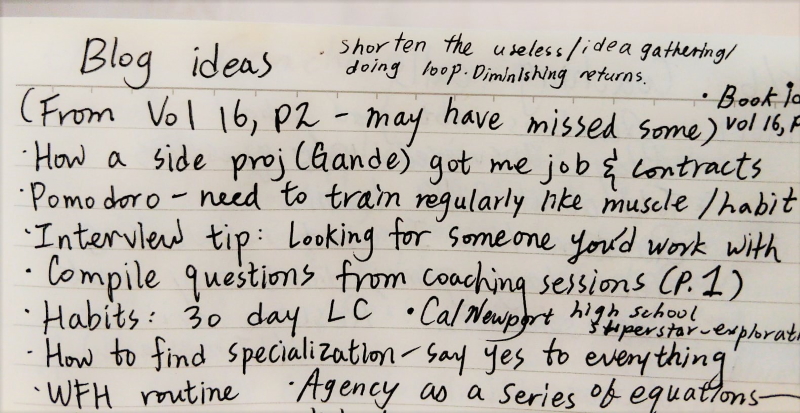 Blog ideas
· shorten the useless/idea gathering/
doing loop. Diminishing returns.
· Book
(From Vol 16, P2 - may have missed some)
Vol 16, P
· How a side proj (Gande) got me job & contracts
· Pomodoro - need to train regularly like muscle / habit
· Interview tip: Looking for someone you'd work with
· Compile questions from coaching sessions (P.1)
· Habits: 30 day LC
· Cal Newport high school
superstar - explorati
· How to find specialization - say yes to everything
· WFH routine
· Agency as a series of equations—